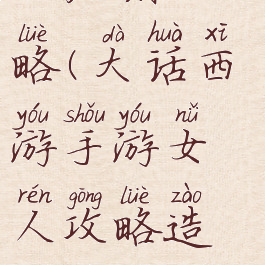 lüè dà huà xī
略(大话西
yóu shǒu yóu nǚ
游手游女
rén gōng lüè zào
人攻略造